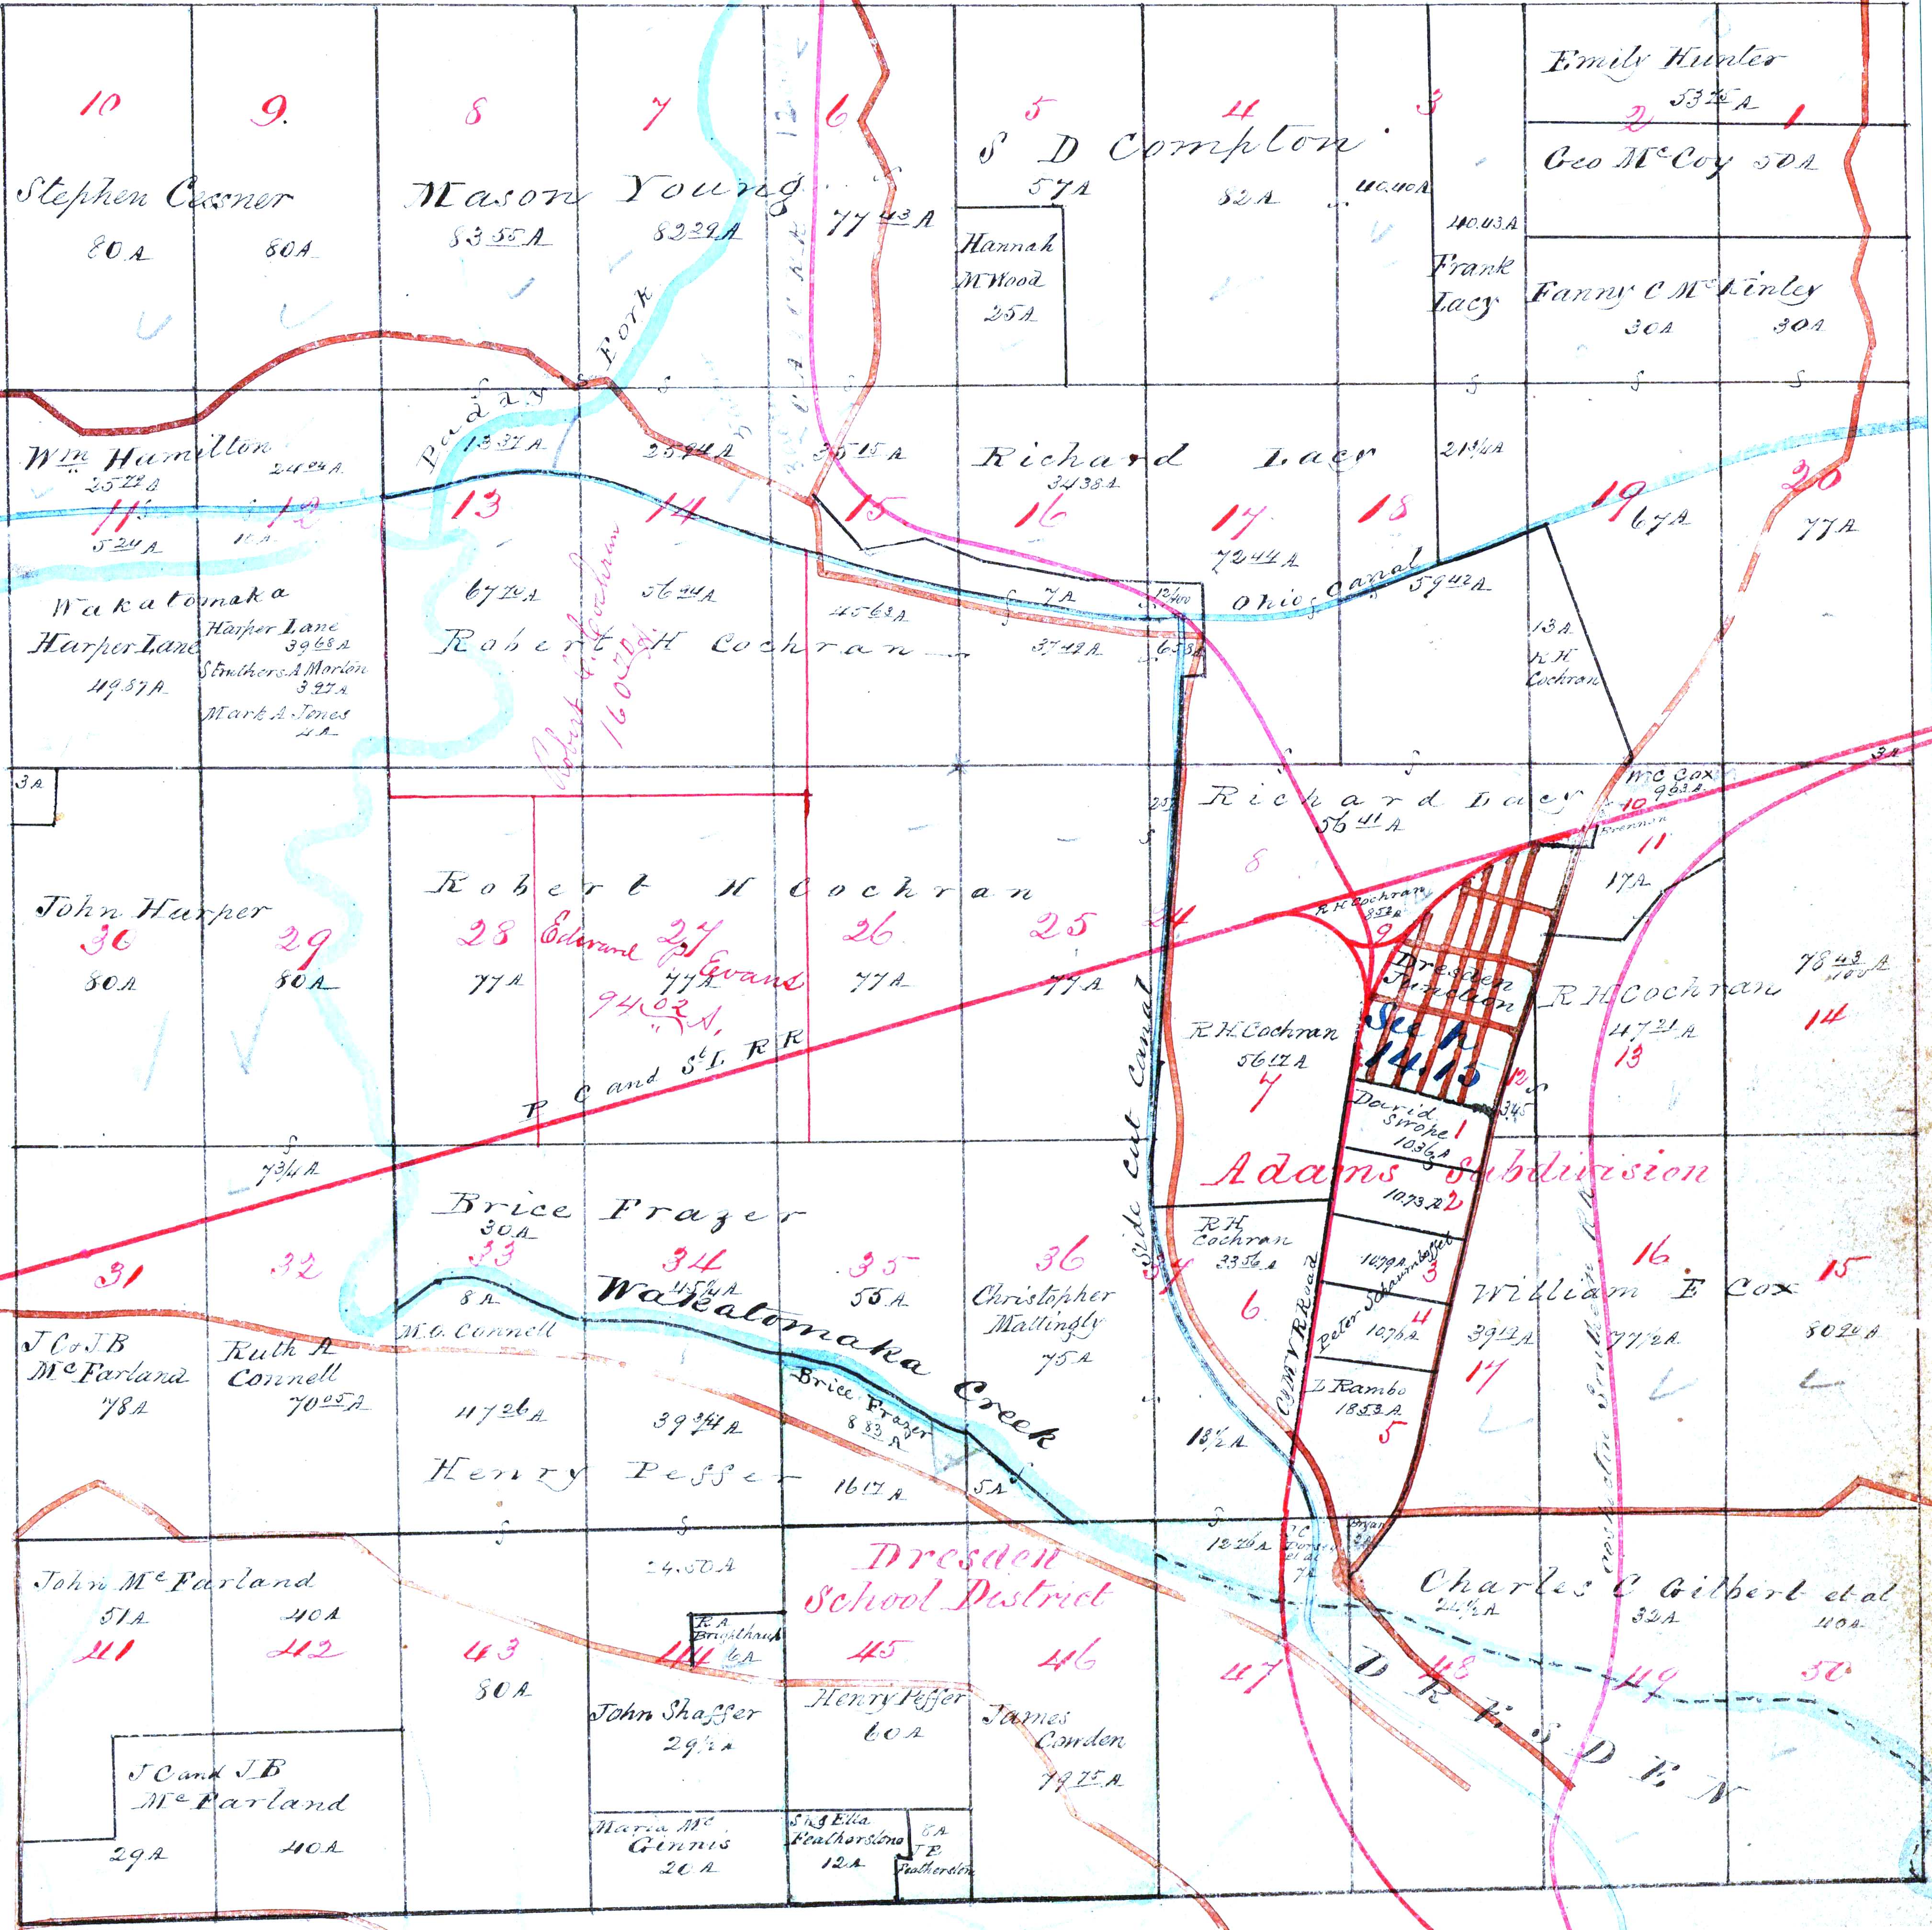 Emily Hunter
53 75 A
10
9.
8
7
6
5
4
3
2
1
S D Compton
Geo McCoy 50A
Stephen Cessner
Mason Young
57A
82A
40.40A
80A
80A
83 55 A
82 29 A
77 43 A
40.43A
Hannah
M Wood
25A
Frank
Lacy
Fanny C McKinley
30A
30A
Paddy's Fork
Wm Hamilton
24 24 A
13 37 A
25 94 A
35 15 A
Richard Lacy
34 38 A
21 3/4 A
11
12
13
14
15
16
17
18
19
20
67A
77A
5 24 A
72 44 A
Ohio Canal
59 42 A
Wakatomaka
Harper Lane
49.87A
Harper Lane
39 68 A
Struthers A Morton
3 97 A
Mark A Jones
4A
67 70 A
56 94 A
45 63 A
7A
12/100
Robert H Cochran
37 42 A
Robert H. Cochran
160 70 A.
13A
R H
Cochran
3A
Richard Lacy
56 41 A
Mc Cox
9 63 A
3A
10
Brennan
11
17A
8
John Harper
Robert H Cochran
R H Cochran
8 52 A
9
30
29
28
27
26
25
24
80A
80A
77A
77A
77A
77A
Edward P Evans
94 02 A.
Dresden
Junction
See h
14.15
R H Cochran
47 21 A
13
78 43/100 A
14
R H Cochran
56 17 A
7
P C and St L R R
Side Cut Canal
12
3.45
David
Swope 1
10.36 A
7 3/4 A
Adams Subdivision
10.73 A 2
Brice Frazer
30A
R H
Cochran
33 56 A
6
10.79 A
3
Peter Schaumloffel
10.76 A
4
31
32
33
34
35
36
37
8A
45 1/4 A
55A
Christopher
Mattingly
75A
16
15
William E Cox
39 12 A
77 1/2 A
80 20 A
17
J C & J B
McFarland
78A
Ruth A
Connell
70 05 A
M.O. Connell
Wakatomaka Creek
Brice Frazer
8 83 A
C & M V R Road
L Rambo
18 53 A
5
47 26 A
39 3/4 A
13 1/2 A
Henry Peffer
16 17 A
5A
24.50A
Dresden
School District
12 26 A
7A
John McFarland
51A
40A
Charles C Gilbert et al
32A
40A
R A
6A
41
42
43
44
45
46
47
48
49
50
80A
John Shaffer
29 1/2 A
Henry Peffer
60A
James
Cowden
79 75 A
DRESDEN
J C and J B
McFarland
29A
40A
Maria Mc
Ginnis
20A
Featherstone
12A
8A
J E